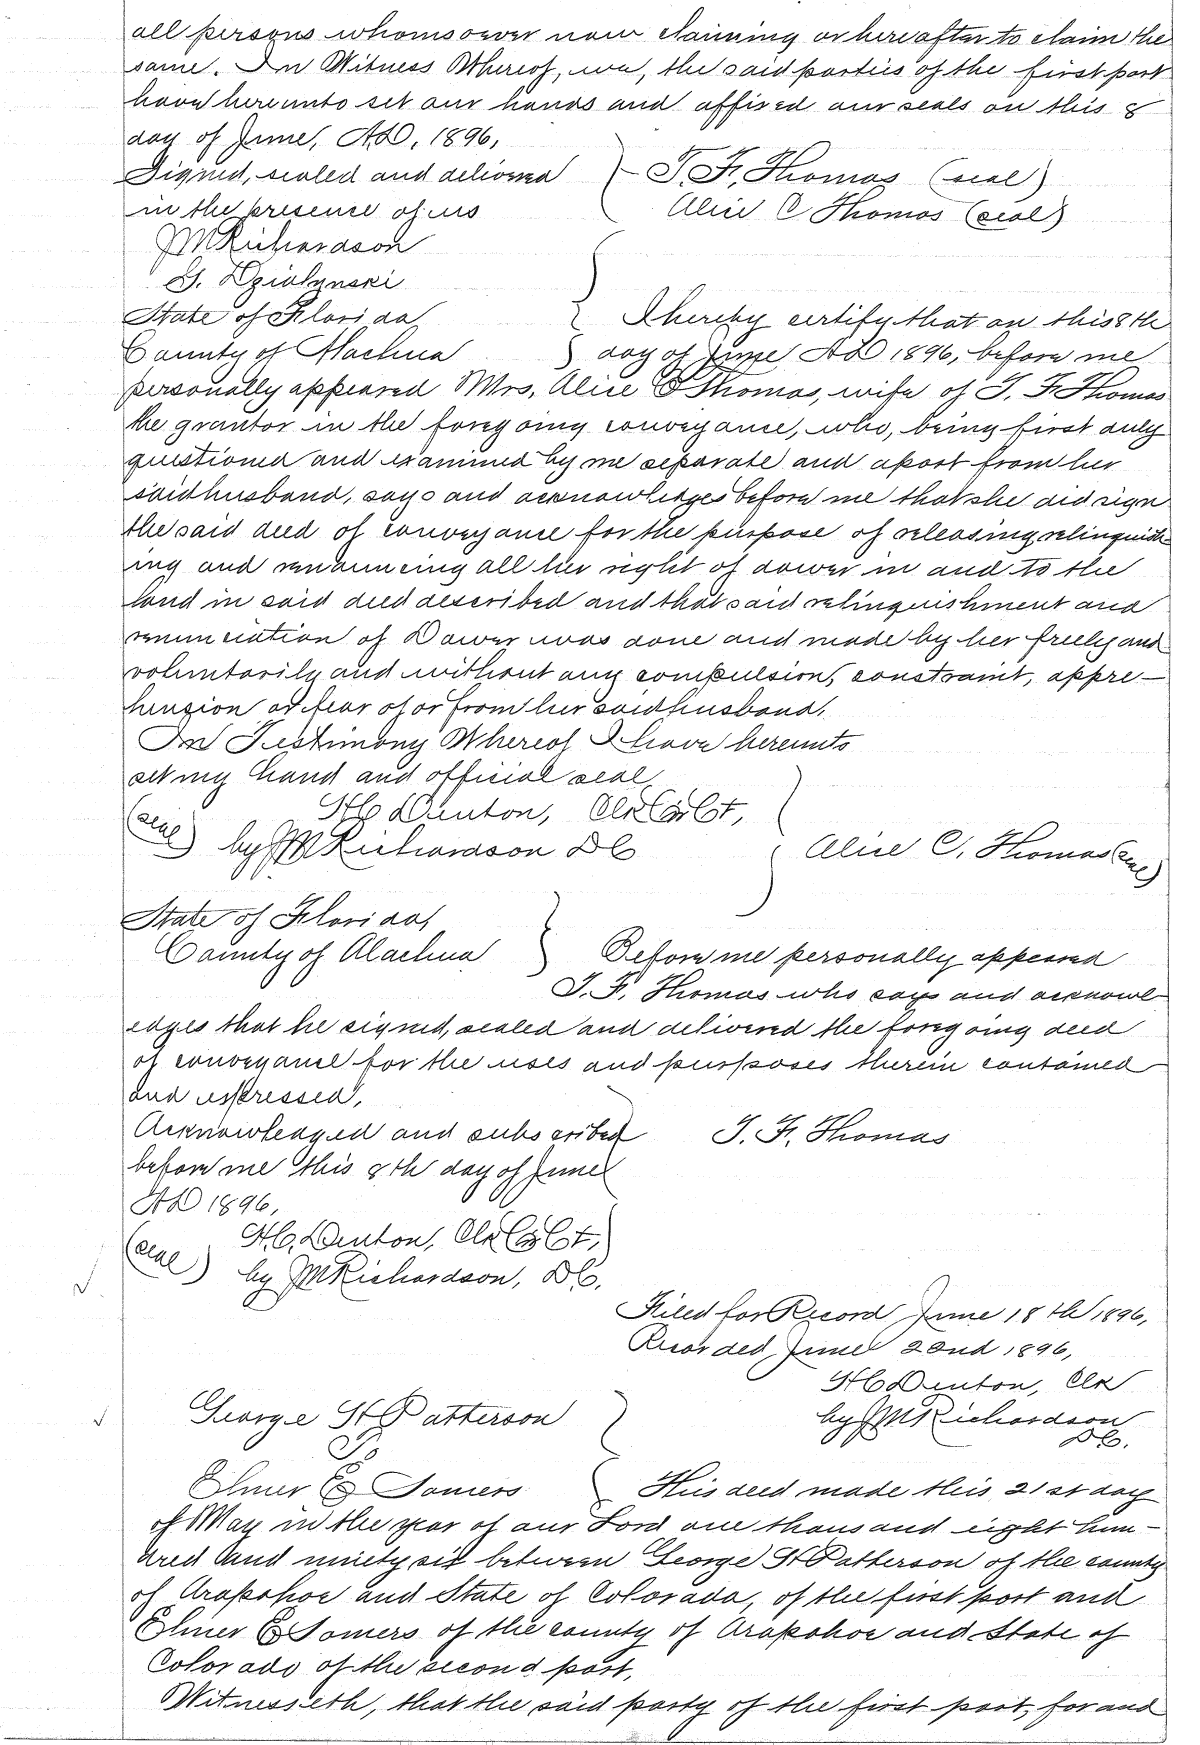 all persons whomsoever now claiming or hereafter to claim the
same. In Witness Whereof, we, the said parties of the first part
have hereunto set our hands and affixed our seals on this 8
day of June, A.D. 1896,
Signed, sealed and delivered
in the presence of us
J M Richardson
G. Dzialynski
T. F. Thomas (seal)
Alice C Thomas (seal)
State of Florida
County of Alachua
I hereby certify that on this 8th
day of June AD 1896, before me
personally appeared Mrs, Alice C Thomas, wife of T. F. Thomas
the grantor in the foregoing conveyance, who, being first duly
questioned and examined by me separate and apart from her
said husband, says and acknowledges before me that she did sign
the said deed of conveyance for the purpose of releasing relinquish-
ing and renouncing all her right of dower in and to the
land in said deed described and that said relinquishment and
renunciation of Dower was done and made by her freely and
voluntarily and without any compulsion, constraint, appre-
hension or fear of or from her said husband.
In Testimony Whereof I have hereunto
set my hand and official seal
H C Denton, Clk Co Ct,
(seal) by J M Richardson D C
Alice C. Thomas (seal)
State of Florida,
County of Alachua
Before me personally appeared
T. F. Thomas who says and acknowl-
edges that he signed, sealed and delivered the foregoing deed
of conveyance for the uses and purposes therein contained
and expressed,
Acknowledged and subscribed
before me this 8th day of June
AD 1896,
T. F. Thomas
(seal) H. C. Denton, Clk Co Ct,
by J M Richardson, D C.
Filed for Record June 18th 1896,
Recorded June 22nd 1896,
H C Denton, Clk
by J M Richardson
D C.
George H Patterson
To
Elmer E Somers
This deed made this 21st day
of May in the year of our Lord one thousand eight hun-
dred and ninety six between George H Patterson of the county
of Arapahoe and State of Colorado, of the first part and
Elmer E Somers of the county of Arapahoe and State of
Colorado of the second part,
Witnesseth, that the said party of the first part, for and